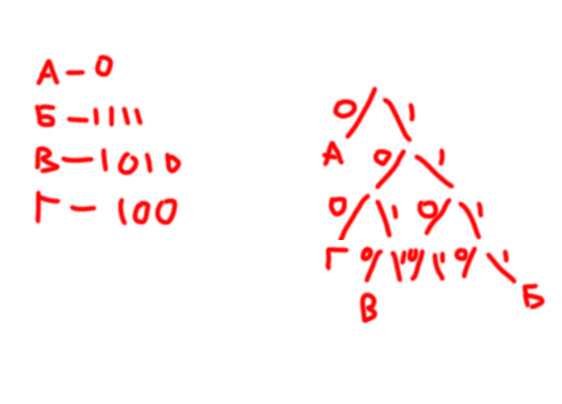 А – 0
Б – 1111
В – 1010
Г – 100
0 1
А 0 1
0 1 0 1
Г 0 1 0 1 0 1
В Б